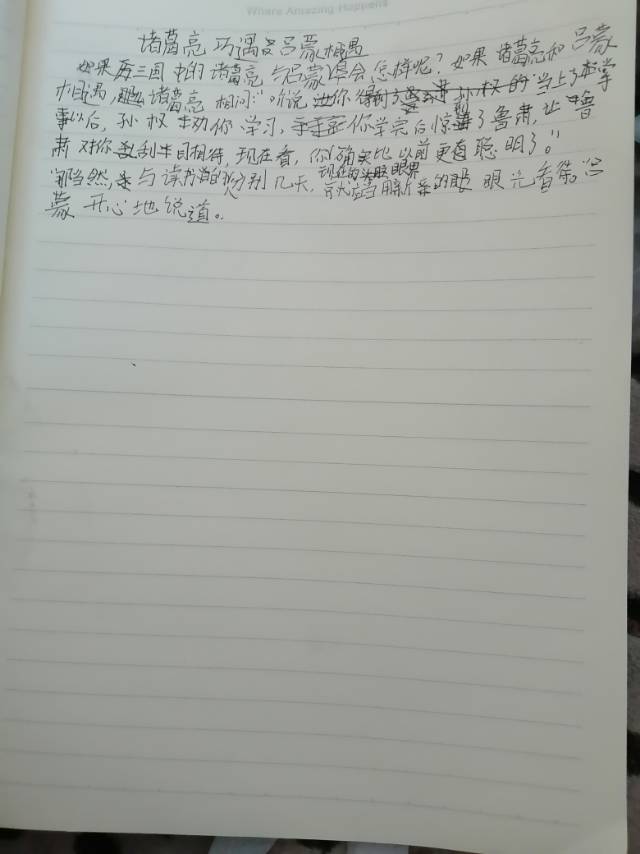 Where Amazing Happens
诸葛亮巧遇吕蒙相遇
如果再三国中的诸葛亮与吕蒙得会怎样呢？如果诸葛亮和吕蒙
相遇，诸葛亮相问：“听说你得到了孙权的当上了掌
事以后，孙权劝你学习，你学完后惊了鲁肃，让鲁
肃对你刮目相待，现在看，你确实比以前更有聪明了。”
“那当然，与读书的人分别几天，现在的眼界可大应当用新的眼光看待。”吕
蒙开心地说道。